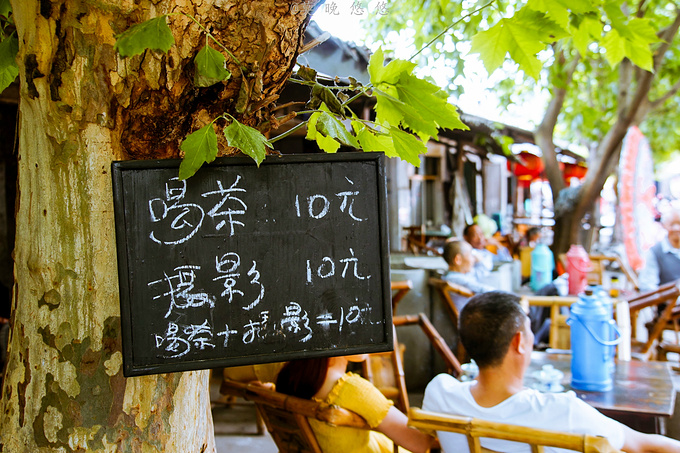 晚悠悠
喝茶 10元
摄影 10元
喝茶+摄影=10